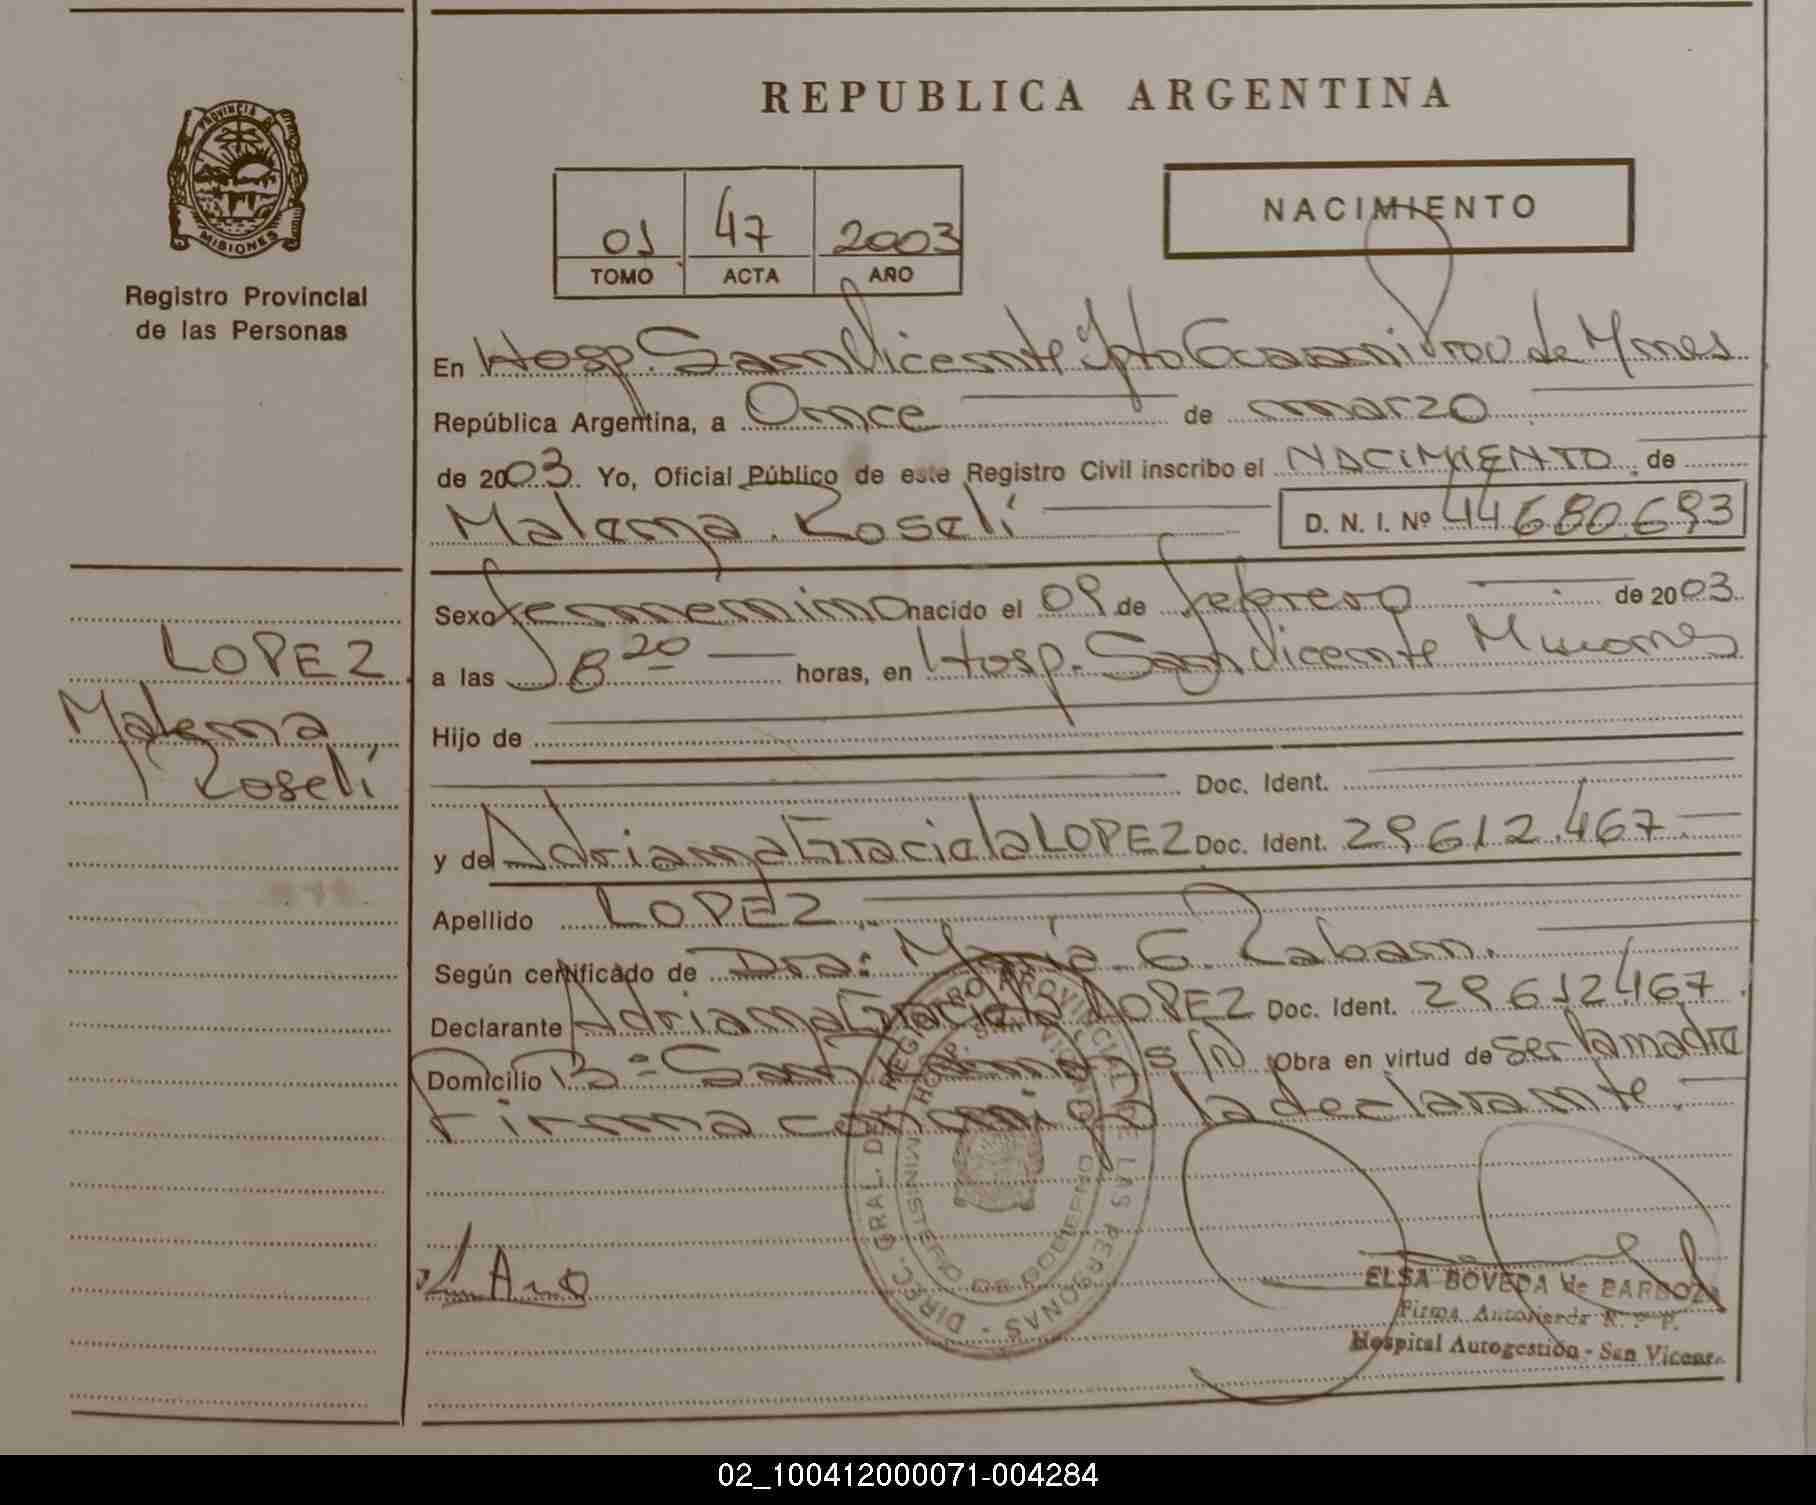 REPUBLICA ARGENTINA
PROVINCIA DE MISIONES
Registro Provincial
de las Personas
01 47 2003
TOMO ACTA AÑO
NACIMIENTO
En Hosp. San Vicente Dpto Guaraní Prov de Mnes
República Argentina, a Once de marzo
de 2003. Yo, Oficial Público de este Registro Civil inscribo el NACIMIENTO de
Malena Roselí D. N. I. Nº 44680.693
Sexo femenino nacido el 09 de febrero de 2003
a las 18 20 horas, en Hosp. San Vicente Misiones
Hijo de
Doc. Ident.
y de Adriana Graciela LOPEZ Doc. Ident. 29612.467
Apellido LOPEZ
Según certificado de Dra: María G.
Declarante Adriana Graciela LOPEZ Doc. Ident. 29612467
Domicilio Bº San s/n Obra en virtud de ser la madre
Firma conmigo la declarante.
LOPEZ
Malena
Roselí
DIREC. GRAL. DEL REGISTRO PROVINCIAL DE LAS PERSONAS
HOSP. SAN VICENTE
MINISTERIO DE GOBIERNO
ELSA BOVEDA de BARBOZA
Firma Autorizada R. P. P.
Hospital Autogestión - San Vicente
02_100412000071-004284